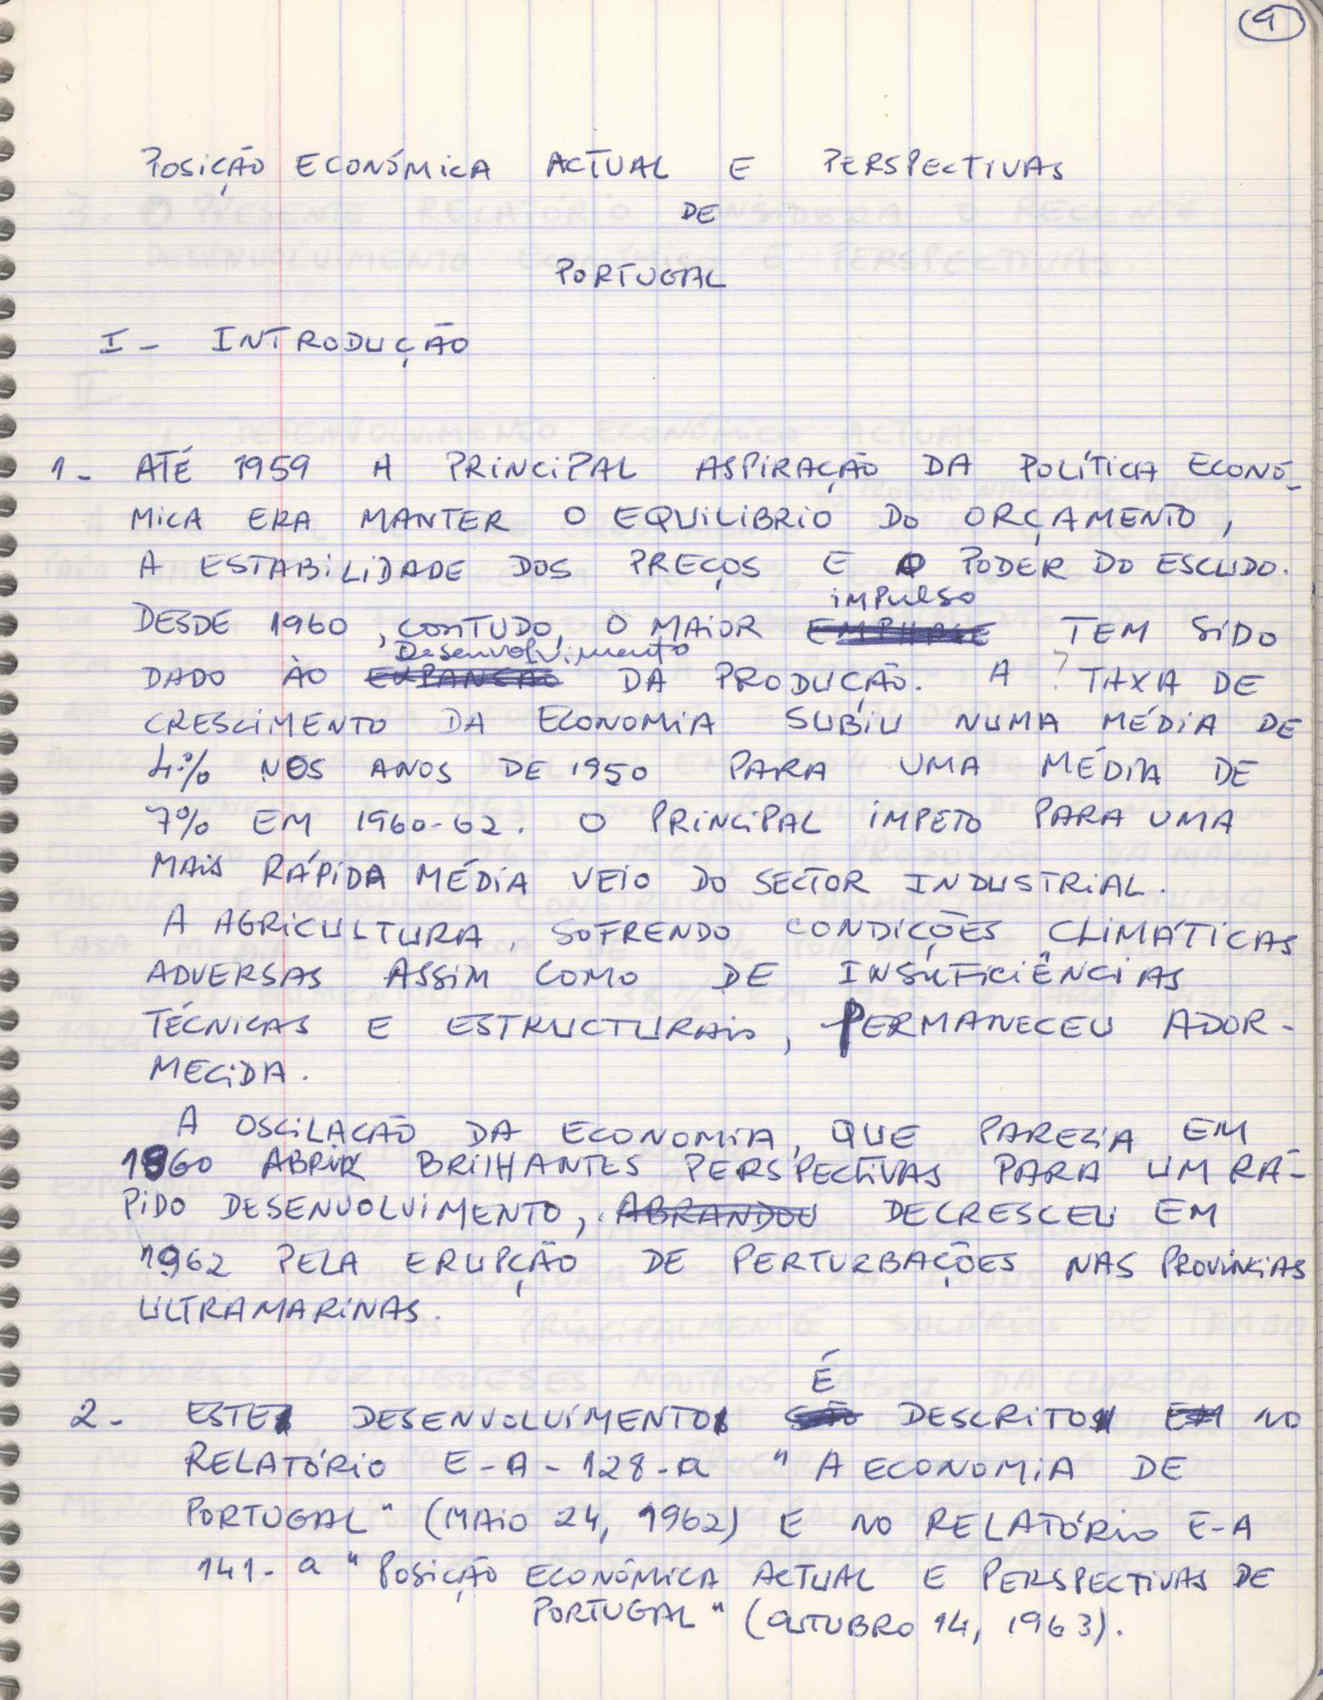 1
POSIÇÃO ECONÓMICA ACTUAL E PERSPECTIVAS
DE
PORTUGAL
I - INTRODUÇÃO
1- ATÉ 1959 A PRINCIPAL ASPIRAÇÃO DA POLÍTICA ECONÓ-
MICA ERA MANTER O EQUILIBRIO DO ORÇAMENTO,
A ESTABILIDADE DOS PREÇOS E O PODER DO ESCUDO.
impulso
DESDE 1960, CONTUDO, O MAIOR EMPHASE TEM SIDO
Desenvolvimento
DADO ÀO EXPANCÃO DA PRODUÇÃO. A ? TAXA DE
CRESCIMENTO DA ECONOMIA SUBIU NUMA MÉDIA DE
4% NOS ANOS DE 1950 PARA UMA MÉDIA DE
7% EM 1960-62. O PRINCIPAL IMPETO PARA UMA
MAIS RÁPIDA MÉDIA VEIO DO SECTOR INDUSTRIAL.
A AGRICULTURA, SOFRENDO CONDIÇÕES CLIMÁTICAS
ADVERSAS ASSIM COMO DE INSUFICIÊNCIAS
TÉCNICAS E ESTRUCTURAIS, PERMANECEU ADOR-
MECIDA.
A OSCILACÃO DA ECONOMIA, QUE PARECIA EM
1960 ABRIR BRILHANTES PERSPECTIVAS PARA UM RÁ-
PIDO DESENVOLVIMENTO, ABRANDOU DECRESCEU EM
1962 PELA ERUPÇÃO DE PERTURBAÇÕES NAS PROVINCIAS
ULTRAMARINAS.
É
2- ESTE DESENVOLVIMENTO SÃO DESCRITO EM NO
RELATÓRIO E-A-128-a "A ECONOMIA DE
PORTUGAL" (MAIO 24, 1962) E NO RELATÓRIO E-A
141-a "POSIÇÃO ECONÓMICA ACTUAL E PERSPECTIVAS DE
PORTUGAL" (OUTUBRO 14, 1963).